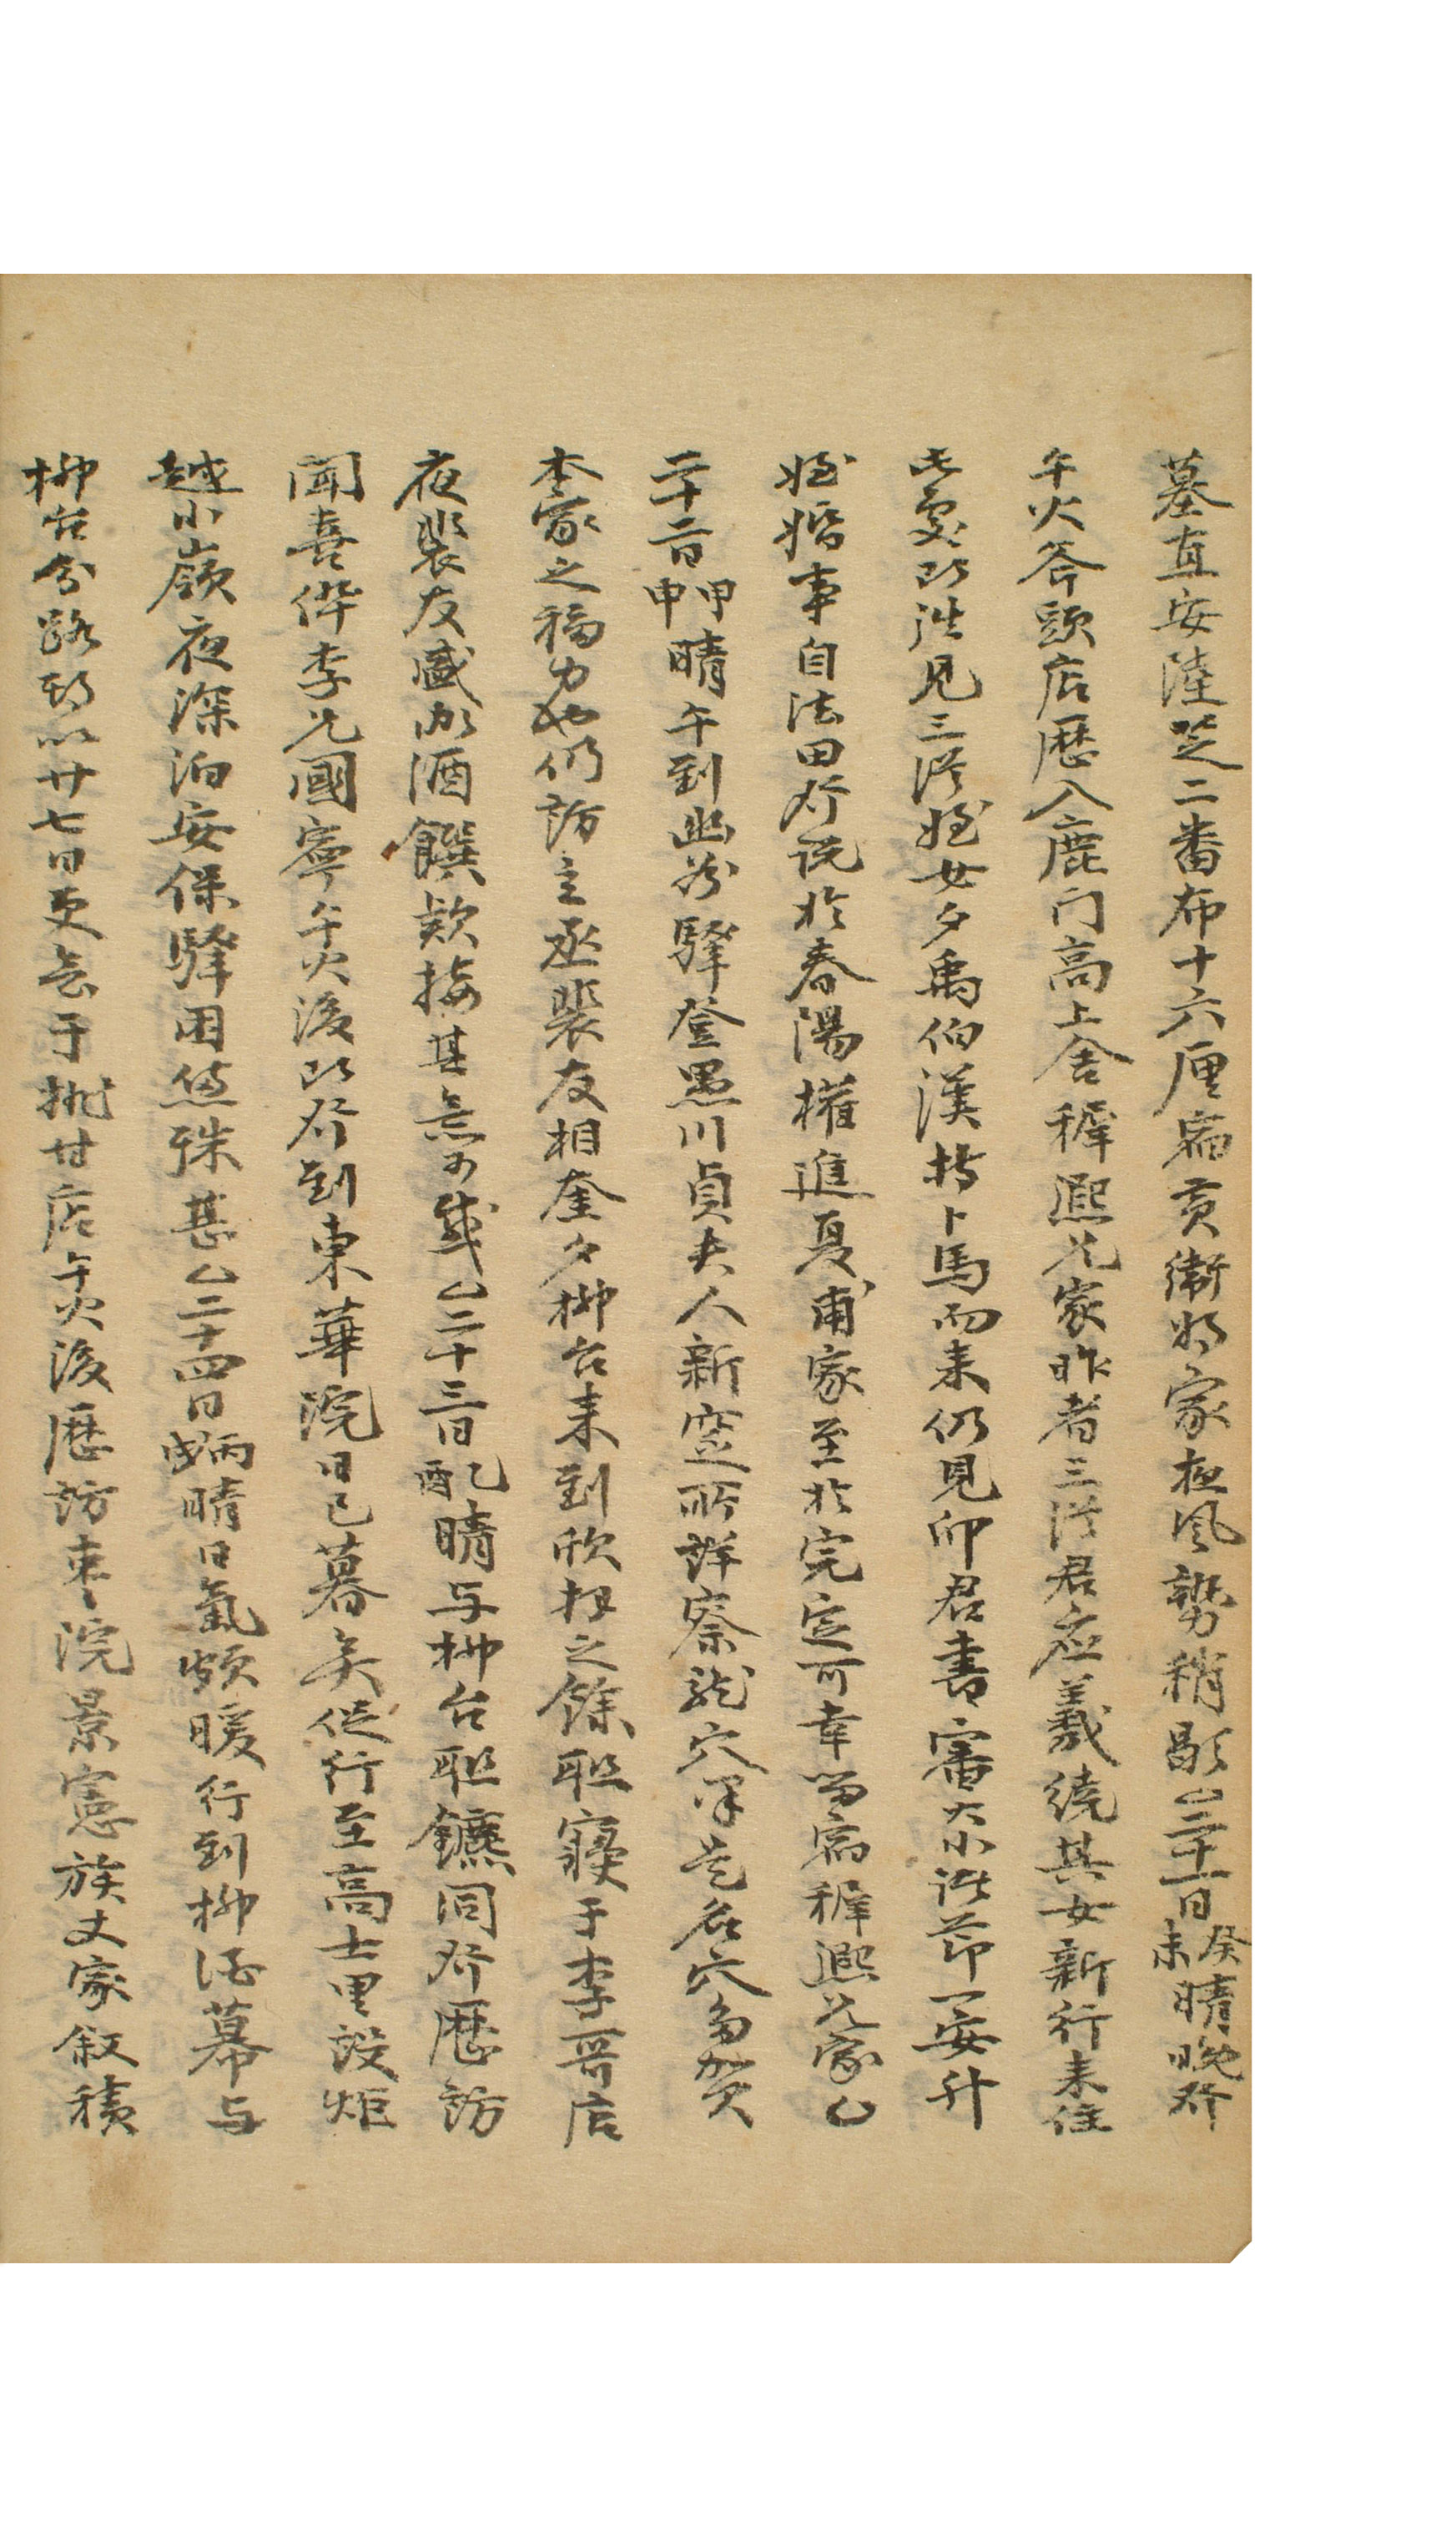 墓直安陸芝二番布十六厘宿黃衛將家夜風勢稍歇二十一日癸未晴晚發
午火答頭店歷入鹿门高上舍穉熙兄家昨者三從君应羲繞其女新行来住
此處即往見三從姪女夕禹伯漢持卜馬而来仍見仰君書審大小諸莭一安升
姪婚事自法田發说於春陽權進夏甫家至於完定可幸留宿穉熙兄家
二十二日甲申晴午到幽谷驛登愚川貞夫人新窆所詳察龍穴果是名穴多贺
本家之福力也仍訪主丞裴友相奎夕柳台来到欣打之餘聯寢于李哥店
夜裴友盛备酒饌欵接甚無少戚二十三日乙酉晴与柳台聯鑣同發歷訪
聞喜倅李兄國寧午火後即發到東華浣日已暮矣促行至高士里設炬
越小嶺夜深泊安保驛困惫殊甚二十四日丙戌晴日氣頗暖行到柳酒幕与
柳台分路期以廿七日更会于挑甘店午火後歷訪東浣景憲族丈家叙積